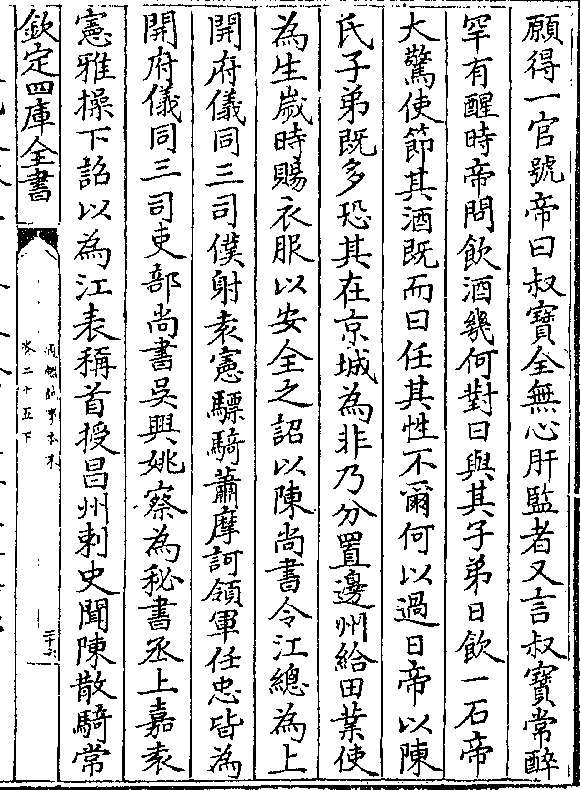 願得一官號帝曰叔寶全無心肝監者又言叔寶常醉
罕有醒時帝問飲酒幾何對曰與其子弟日飲一石帝
大驚使節其酒既而曰任其性不爾何以過日帝以陳
氏子弟既多恐其在京城為非乃分置邊州給田業使
為生嵗時賜衣服以安全之詔以陳尚書令江總為上
開府儀同三司僕射袁憲驃騎蕭摩訶領軍任忠皆為
開府儀同三司吏部尚書吳興姚察為秘書丞上嘉袁
憲雅操下詔以為江表稱首授昌州刺史聞陳散騎常
欽定四庫全書
卷二十五下